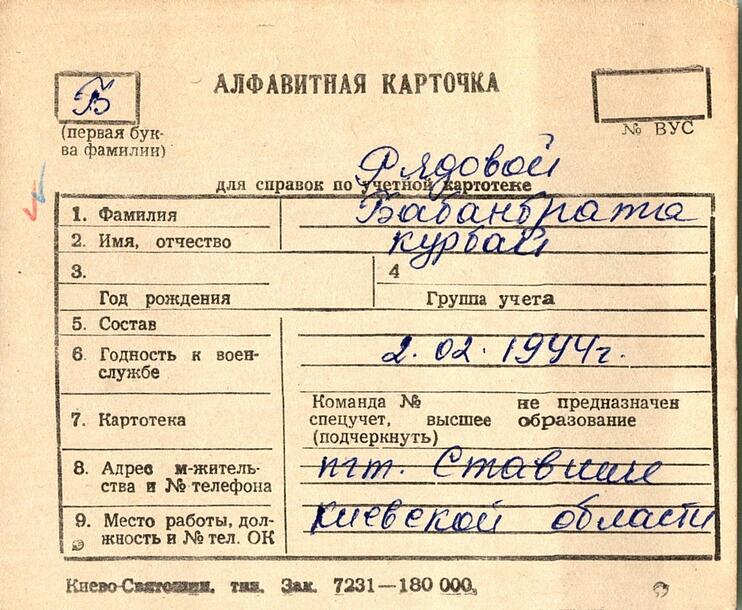 Б
АЛФАВИТНАЯ КАРТОЧКА
(первая бук-
ва фамилии)
№ ВУС
Рядовой
для справок по учетной картотеке
1. Фамилия Бабанбратта
2. Имя, отчество Курбай
3.
Год рождения
4
Группа учета
5. Состав
6. Годность к воен-
службе
2.02.1944г.
7. Картотека
Команда № не предназначен
спецучет, высшее образование
(подчеркнуть)
8. Адрес м-житель-
ства и № телефона
пгт. Ставище
9. Место работы, дол-
жность и № тел. ОК
Киевской области
Киево-Святошин. тип. Зак. 7231—180 000.